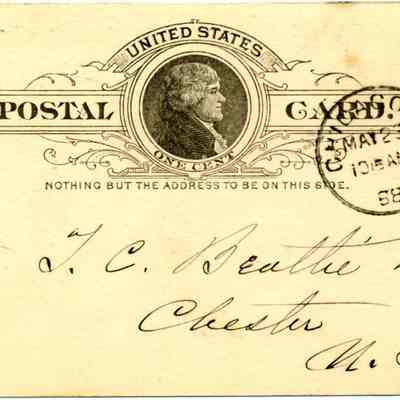 UNITED STATES
POSTAL CARD.
ONE CENT
NOTHING BUT THE ADDRESS TO BE ON THIS SIDE.
CHICAGO
MAY 2
10 15 AM
88
T. C. Beattie
Chester